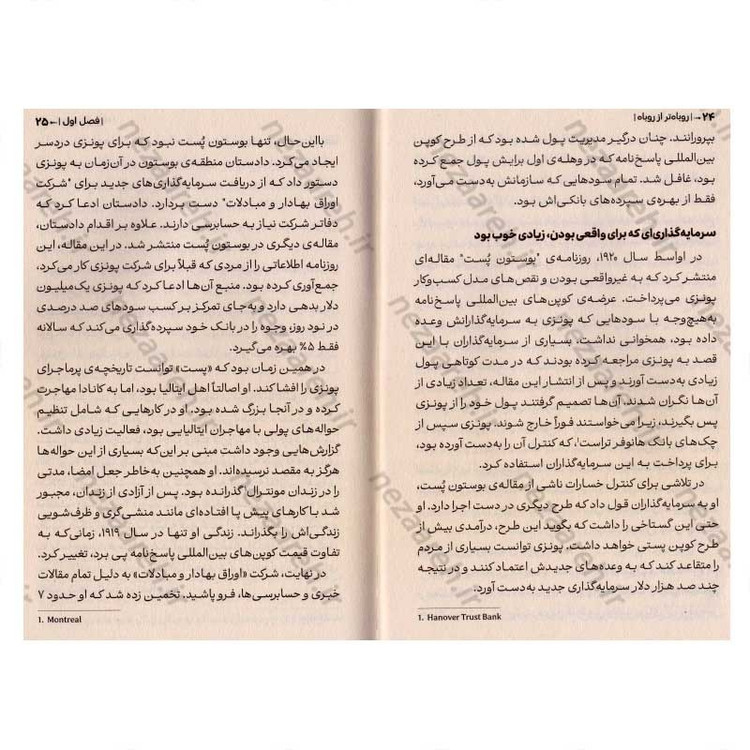 ۲۴ → | روباه‌تر از روباه |
بپرورانند. چنان درگیر مدیریت پول شده بود که از طرح کوپن
بین‌المللی پاسخ‌نامه که در وهله‌ی اول برایش پول جمع کرده
بود، غافل شد. تمام سودهایی که سازمانش به‌دست می‌آورد،
فقط از بهره‌ی سپرده‌های بانکی‌اش بود.
سرمایه‌گذاری‌ای که برای واقعی بودن، زیادی خوب بود
در اواسط سال ۱۹۲۰، روزنامه‌ی "بوستون پُست" مقاله‌ای
منتشر کرد که به غیرواقعی بودن و نقص‌های مدل کسب‌وکار
پونزی می‌پرداخت. عرضه‌ی کوپن‌های بین‌المللی پاسخ‌نامه
به‌هیچ‌وجه با سودهایی که پونزی به سرمایه‌گذارانش وعده
داده بود، همخوانی نداشت. بسیاری از سرمایه‌گذاران با این
قصد به پونزی مراجعه کرده بودند که در مدت کوتاهی پول
زیادی به‌دست آورند و پس از انتشار این مقاله، تعداد زیادی از
آن‌ها نگران شدند. آن‌ها تصمیم گرفتند پول خود را از پونزی
پس بگیرند، زیرا می‌خواستند فوراً خارج شوند. پونزی سپس از
چک‌های بانک هانوفر تراست¹، که کنترل آن را به‌دست آورده بود،
برای پرداخت به این سرمایه‌گذاران استفاده کرد.
در تلاشی برای کنترل خسارات ناشی از مقاله‌ی بوستون پُست،
او به سرمایه‌گذاران قول داد که طرح دیگری در دست اجرا دارد. او
حتی این گستاخی را داشت که بگوید این طرح، درآمدی بیش از
طرح کوپن پستی خواهد داشت. پونزی توانست بسیاری از مردم
را متقاعد کند که به وعده‌های جدیدش اعتماد کنند و در نتیجه
چند صد هزار دلار سرمایه‌گذاری جدید به‌دست آورد.
1. Hanover Trust Bank
| فصل اول | ← ۲۵
بااین‌حال، تنها بوستون پُست نبود که برای پونزی دردسر
ایجاد می‌کرد. دادستان منطقه‌ی بوستون در آن‌زمان به پونزی
دستور داد که از دریافت سرمایه‌گذاری‌های جدید برای "شرکت
اوراق بهادار و مبادلات" دست بردارد. دادستان ادعا کرد که
دفاتر شرکت نیاز به حسابرسی دارند. علاوه بر اقدام دادستان،
مقاله‌ی دیگری در بوستون پُست منتشر شد. در این مقاله، این
روزنامه اطلاعاتی را از مردی که قبلاً برای شرکت پونزی کار می‌کرد،
جمع‌آوری کرده بود. منبع آن‌ها ادعا کرد که پونزی یک‌میلیون
دلار بدهی دارد و به‌جای تمرکز بر کسب سودهای صد درصدی
در نود روز، وجوه را در بانک خود سپرده‌گذاری می‌کند که سالانه
فقط ۵% بهره می‌گیرد.
در همین زمان بود که «پست» توانست تاریخچه‌ی پرماجرای
پونزی را افشا کند. او اصالتاً اهل ایتالیا بود، اما به کانادا مهاجرت
کرده و در آنجا بزرگ شده بود. او در کارهایی که شامل تنظیم
حواله‌های پولی با مهاجران ایتالیایی بود، فعالیت زیادی داشت.
گزارش‌هایی وجود داشت مبنی بر این‌که بسیاری از این حواله‌ها
هرگز به مقصد نرسیده‌اند. او همچنین به‌خاطر جعل امضا، مدتی
را در زندان مونترال¹ گذرانده بود. پس از آزادی از زندان، مجبور
شد با کارهای پیش پا افتاده‌ای مانند منشی‌گری و ظرف‌شویی
زندگی‌اش را بگذراند. زندگی او تنها در سال ۱۹۱۹، زمانی‌که به
تفاوت قیمت کوپن‌های بین‌المللی پاسخ‌نامه پی برد، تغییر کرد.
در نهایت، شرکت «اوراق بهادار و مبادلات» به دلیل تمام مقالات
خبری و حسابرسی‌ها، فرو پاشید. تخمین زده شد که او حدود ۷
1. Montreal
nezaareh.ir